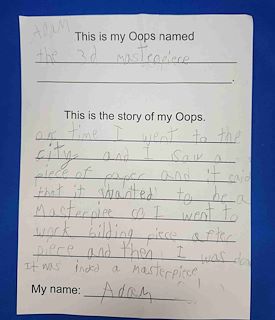 ADAM
This is my Oops named
the 3d masterpiece
This is the story of my Oops.
on time I went to the
city and I saw a
piece of paper and it said
that it wanted to be a
Masterpiec so I went to
work bilding piece after
piere and then I was don
It was inded a masterpiece!
My name: Adam